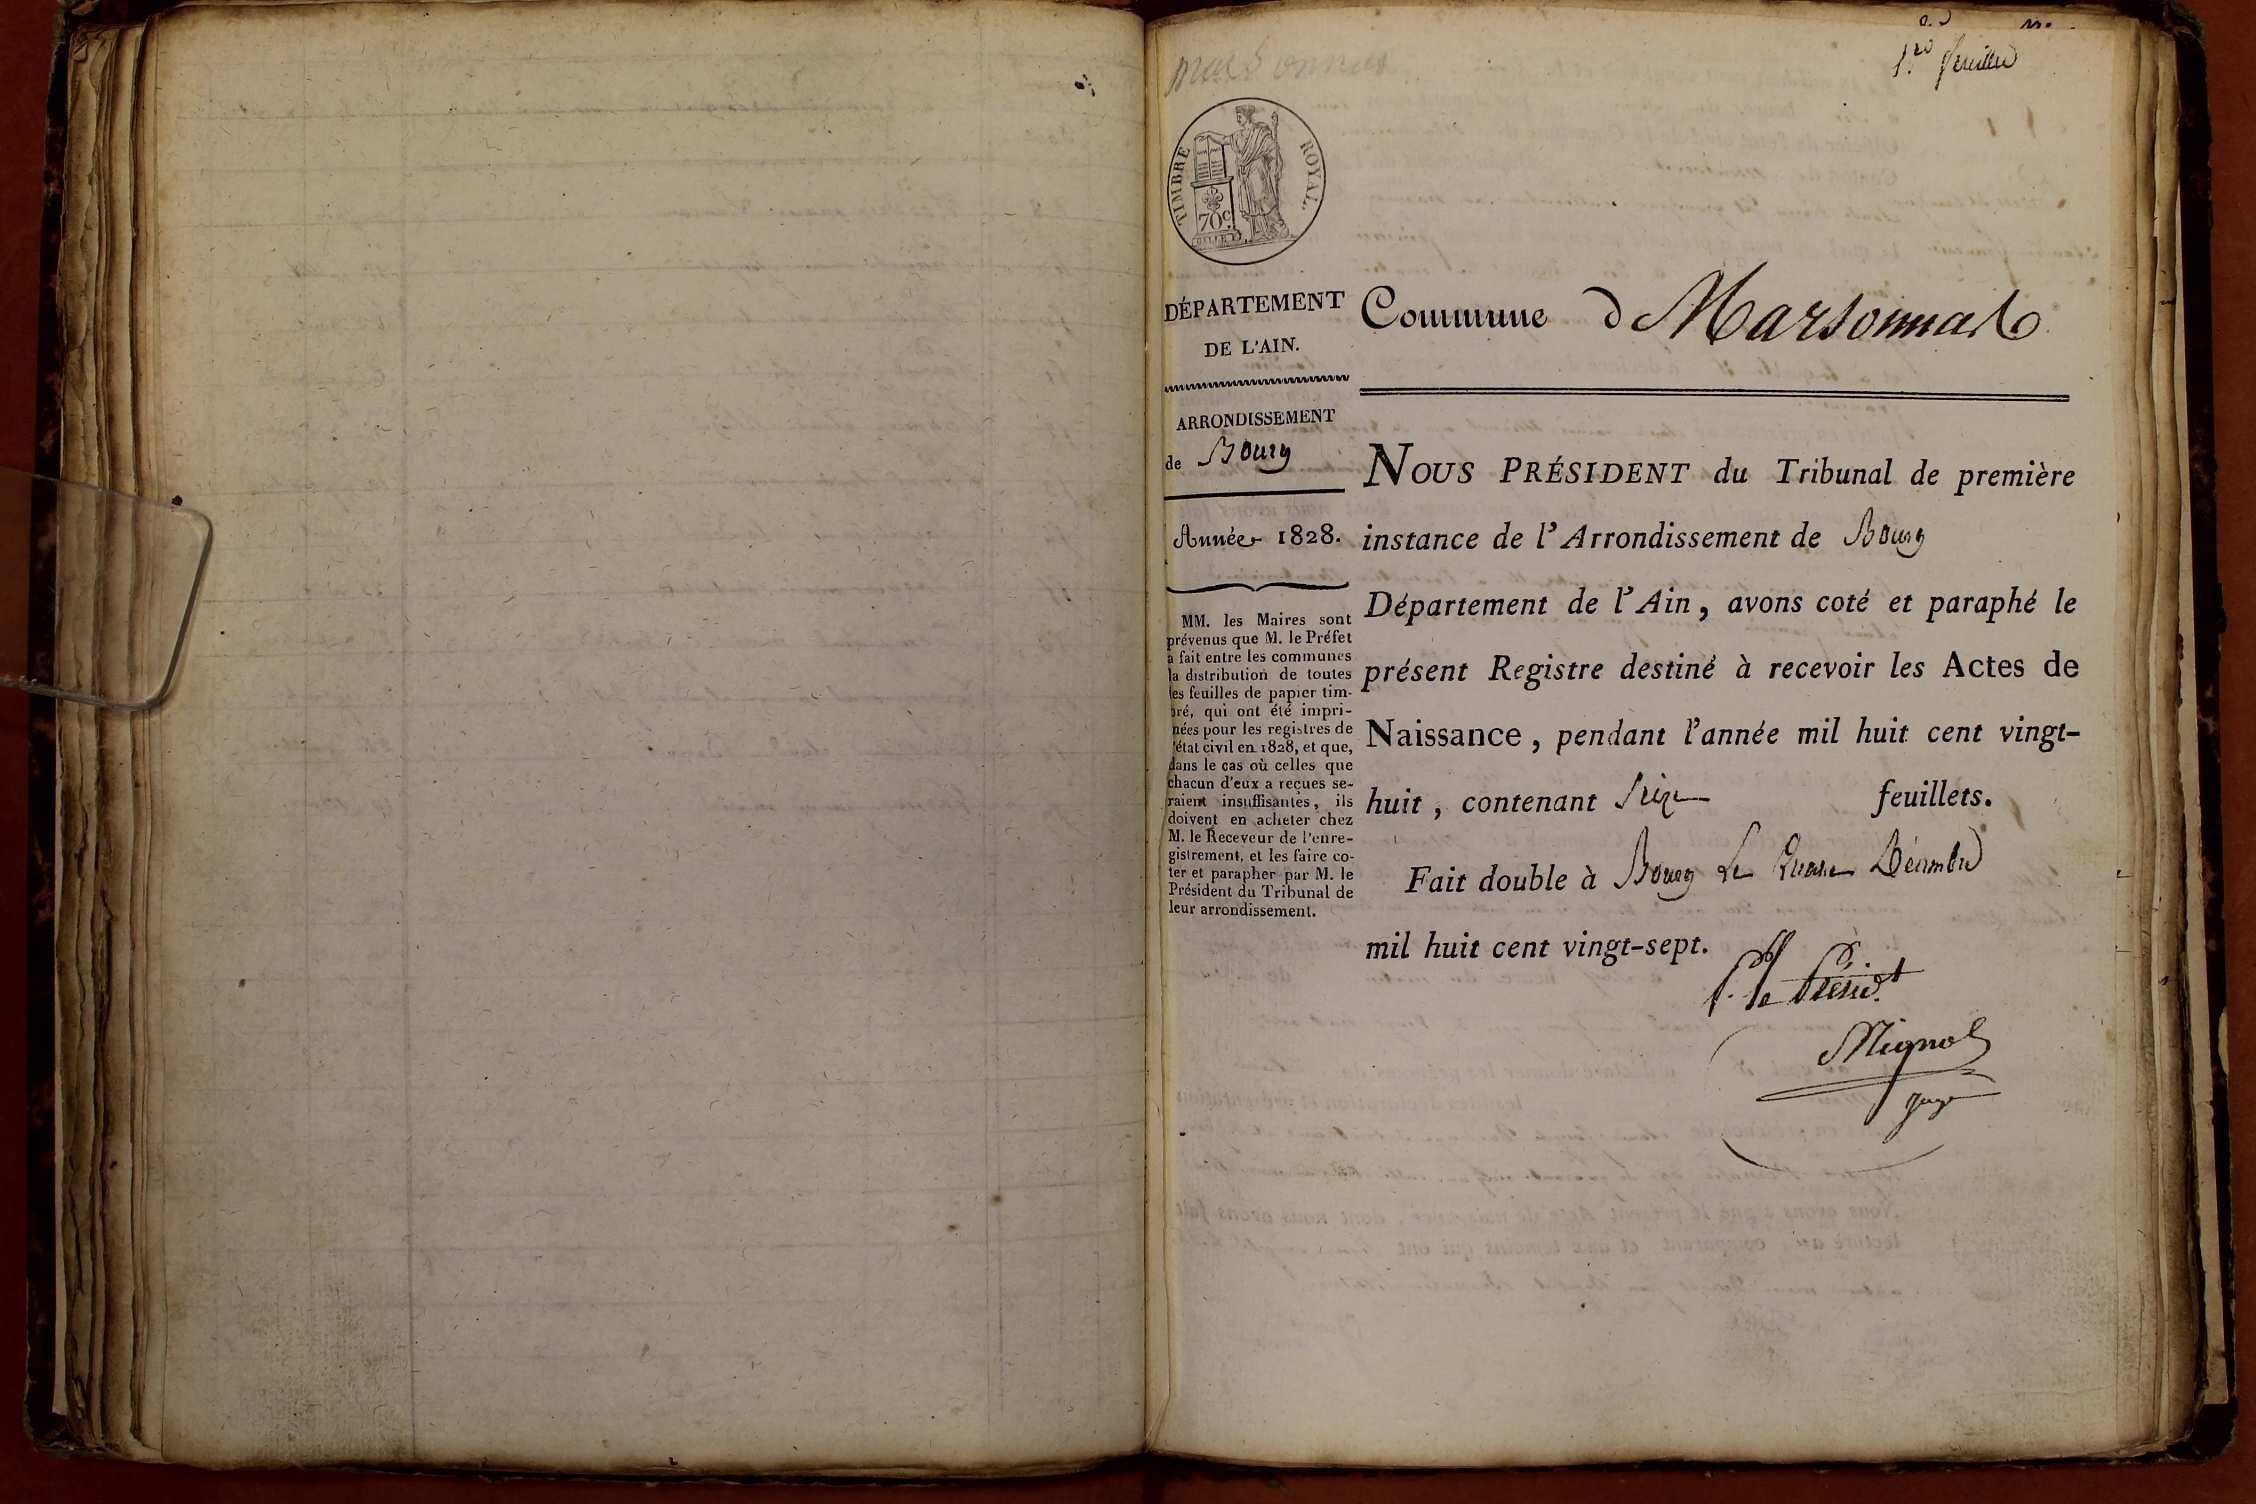 1.er feuillet
TIMBRE ROYAL.
70c.
DÉPARTEMENT
DE L'AIN.
ARRONDISSEMENT
de Bourg
Année 1828.
MM. les Maires sont
prévenus que M. le Préfet
a fait entre les communes
la distribution de toutes
les feuilles de papier tim-
bré, qui ont été impri-
mées pour les registres de
l'état civil en 1828, et que,
dans le cas où celles que
chacun d'eux a reçues se-
raient insuffisantes, ils
doivent en acheter chez
M. le Receveur de l'enre-
gistrement, et les faire co-
ter et parapher par M. le
Président du Tribunal de
leur arrondissement.
Commune d Marsonnas
NOUS PRÉSIDENT du Tribunal de première
instance de l'Arrondissement de Bourg
Département de l'Ain, avons coté et paraphé le
présent Registre destiné à recevoir les Actes de
Naissance, pendant l'année mil huit cent vingt-
huit, contenant Seize feuillets.
Fait double à Bourg Le Décembre
mil huit cent vingt-sept.
P. le Présid.t
Mignot
Juge